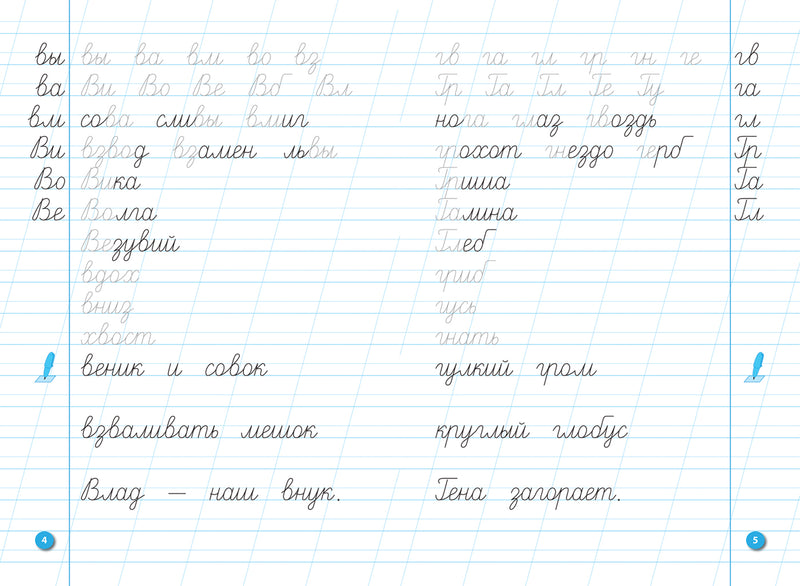 вы вы ва вм во вз
ва Ви Во Ве Вб Вл
вм сова сливы вмиг
Ви взвод взамен львы
Во Вика
Ве Волга
Везувий
вдох
вниз
хвост
веник и совок
взваливать мешок
Влад – наш внук.
4
гв га гл гр гн ге гв
Гр Га Гл Ге Гу га
нога глаз гвоздь гл
грохот гнездо герб Гр
Гриша Га
Галина Гл
Глеб
гриб
гусь
гнать
гулкий гром
круглый глобус
Гена загорает.
5